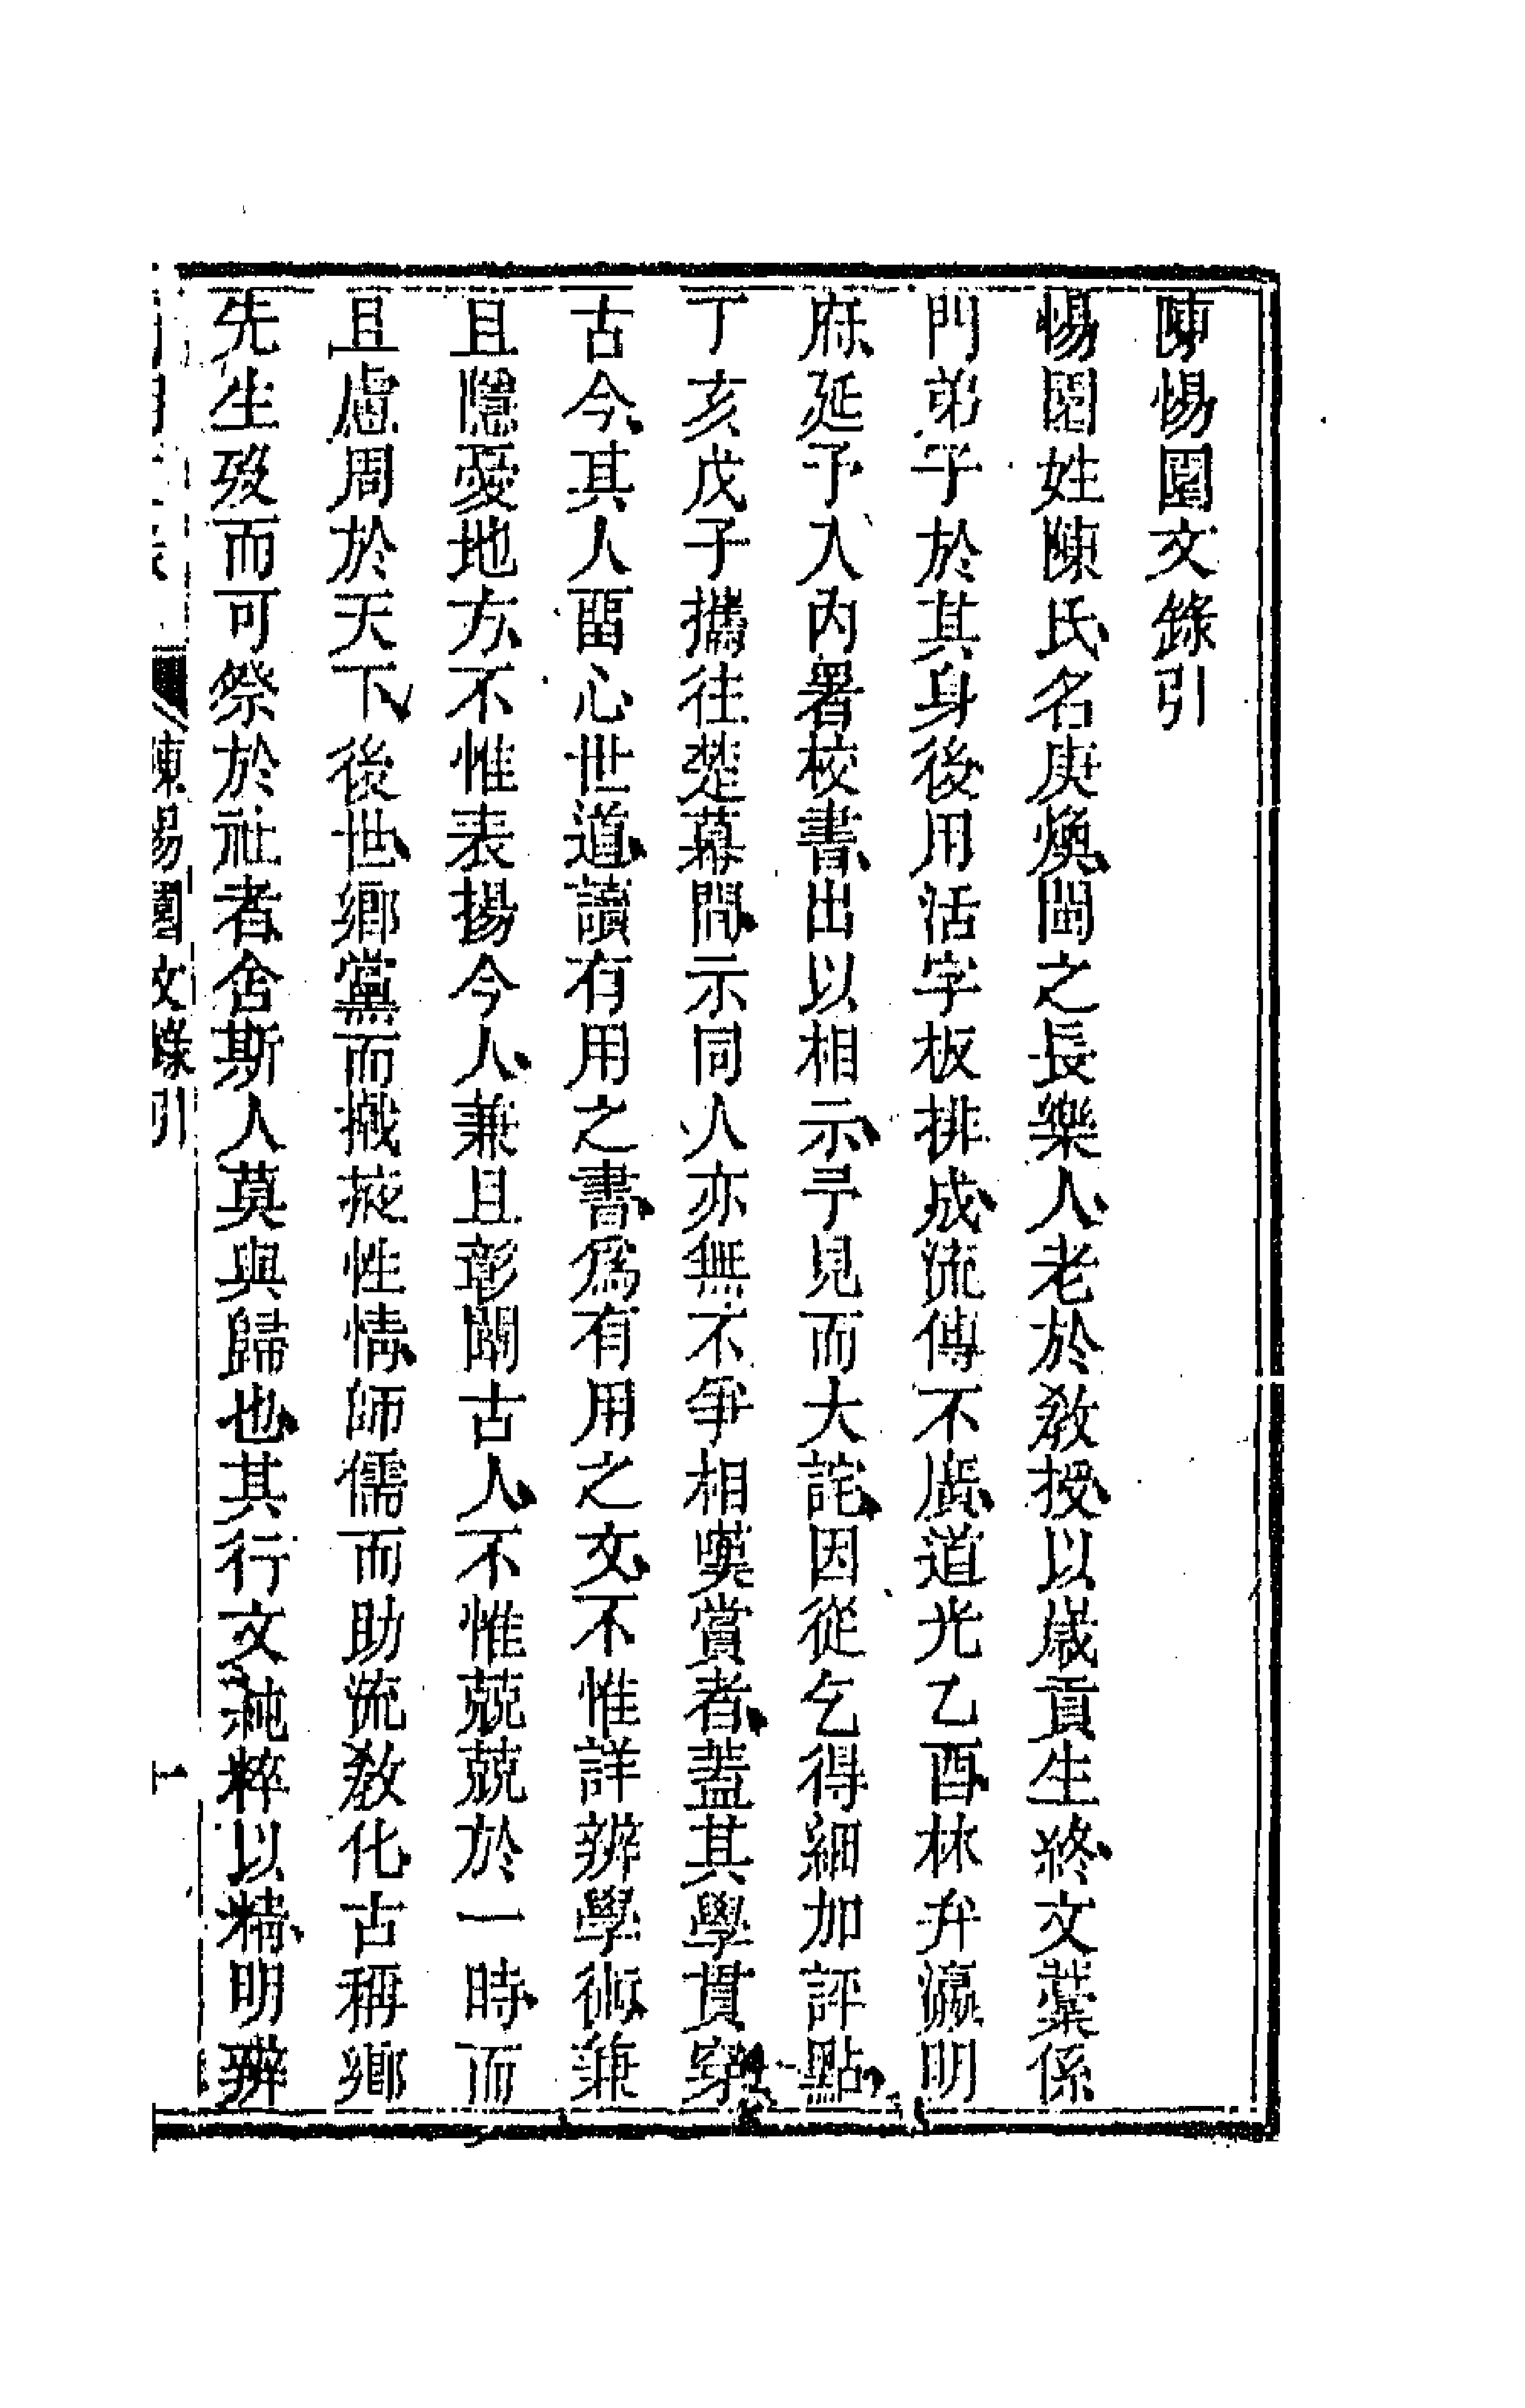 陳惕園文錄引
惕園姓陳氏名庚煥閩之長樂人老於教授以歲貢生終文藁係
門弟子於其身後用活字板排成流傳不廣道光乙酉林弁瀛明
府延予入內署校書出以相示予見而大詫因從乞得細加評點
丁亥戊子攜往楚幕間示同人亦無不爭相嘆賞者蓋其學貫穿
古今其人畱心世道讀有用之書爲有用之文不惟詳辨學術兼
且隱憂地方不惟表揚今人兼且彰闡古人不惟兢兢於一時而
且慮周於天下後世鄉黨而摫掞性情師儒而助流敎化古稱鄉
先生歿而可祭於社者舍斯人莫與歸也其行文純粹以精明辨
陳惕園文錄引
一